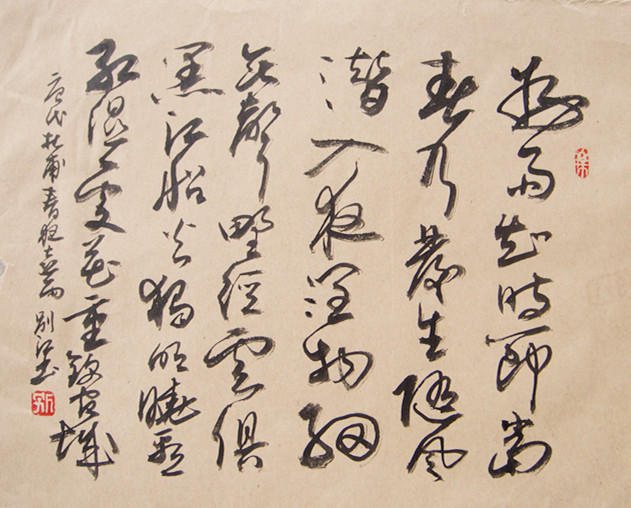 好雨知時節當
春乃發生隨风
潛入夜润物细
無聲野徑雲俱
黑江船火獨明曉看
红湿處花重錦官城
唐代杜甫春夜喜雨